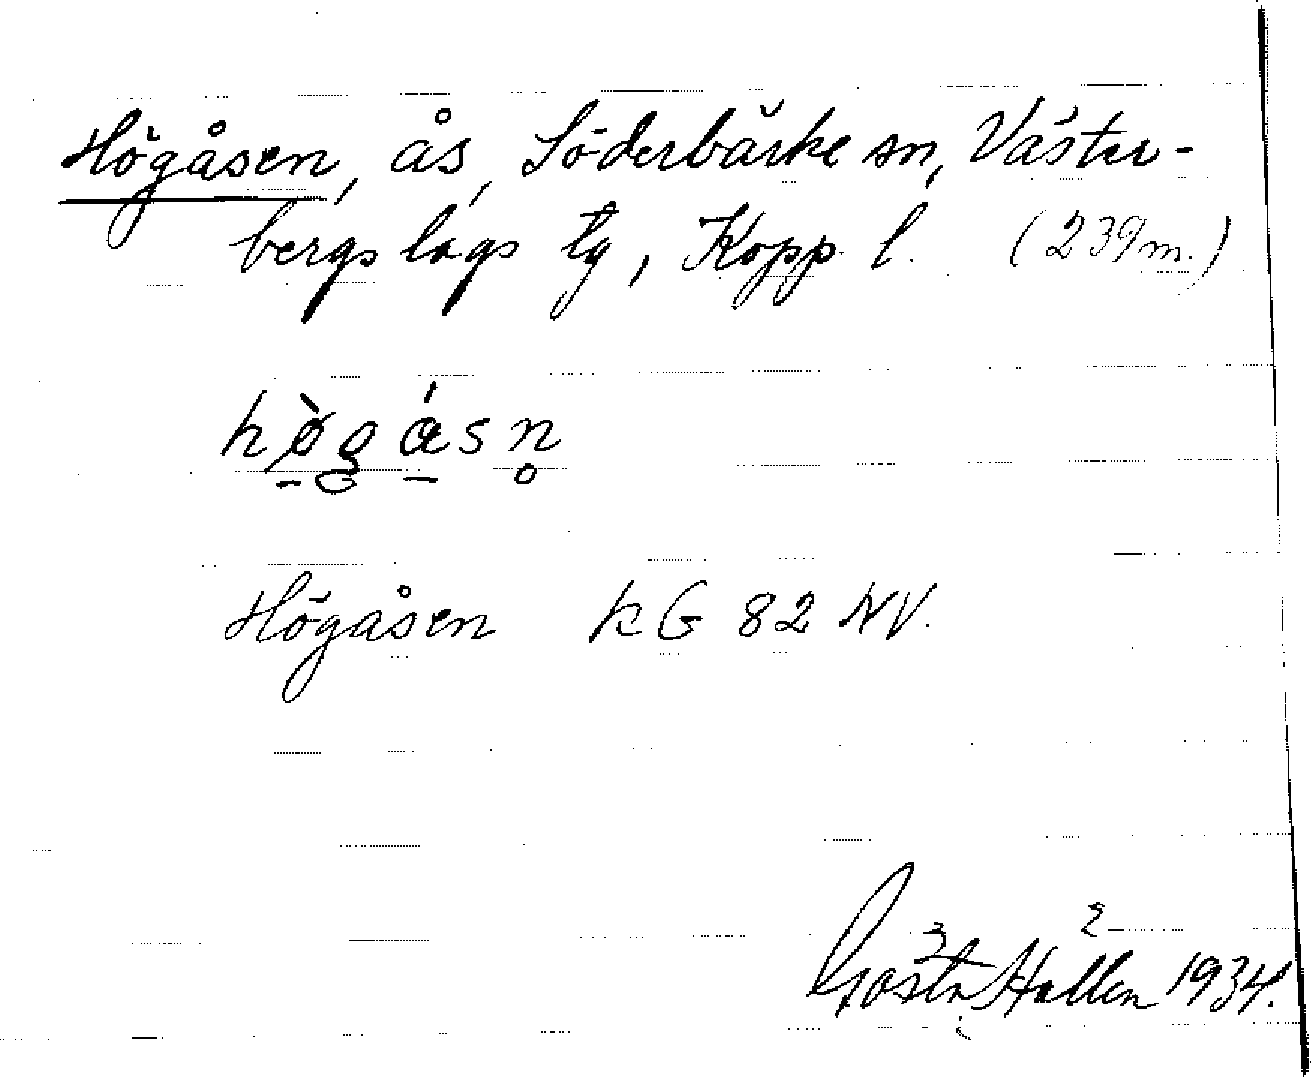 Högåsen, ås, Söderbärke sn, Väster-
bergslags tg, Kopp. l. (239 m.)
hø̀gásn̥
Högåsen kG 82 NV.
Gösta Hallen 1934.